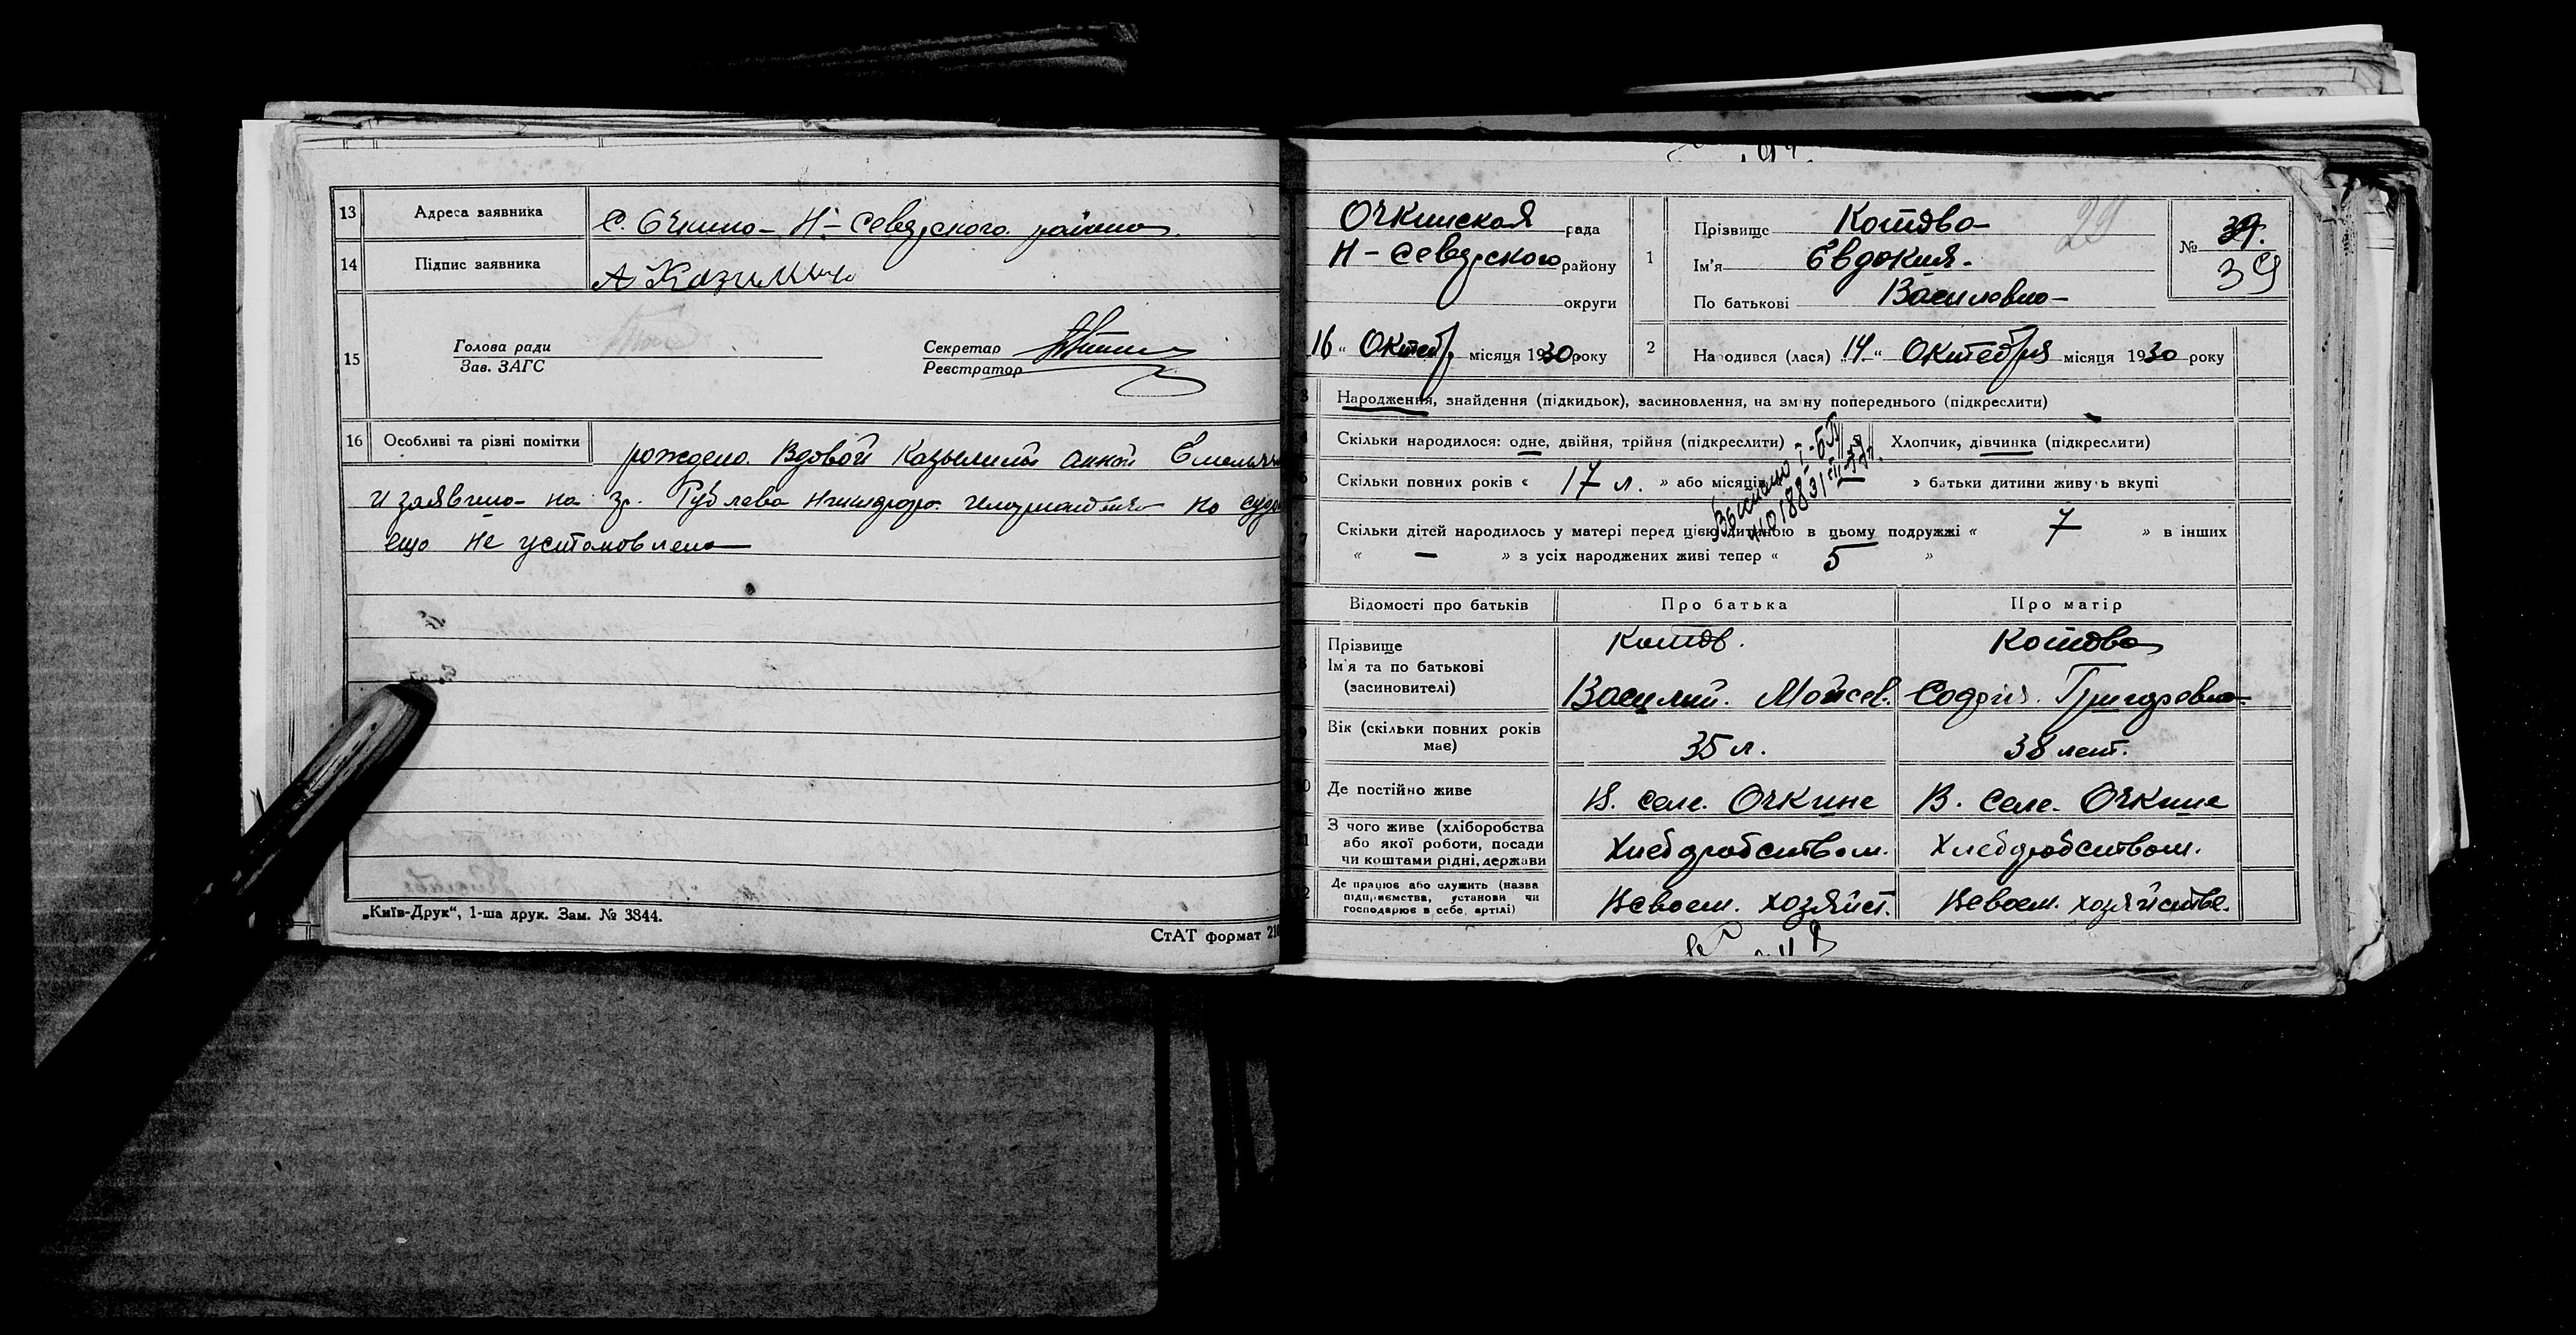 13 Адреса заявника С. Очкино Н-Северского района
14 Підпис заявника А Казилин
15 Голова ради
Зав. ЗАГС
Секретар
Реєстратор
16 Особливі та різні помітки рождено Вдовой Анной Емельян
и заявлено на гр. Рублева но судом
ещо не установлено
„Київ-Друк“, 1-ша друк. Зам. № 3844.
СтАТ формат 210
Очкинская рада
Н-Северского району
округи
16 „ Октебр місяця 1930 року
1 Прізвище Котова
Ім'я Евдокия
По батькові Василевна
29
№ 39.
39
2 Народився (лася) 14 „ Октебря місяця 1930 року
3 Народження, знайдення (підкидьок), засиновлення, на зміну попереднього (підкреслити)
Скільки народилося: одне, двійня, трійня (підкреслити) Хлопчик, дівчинка (підкреслити)
Скільки повних років « 17 л. » або місяців » батьки дитини живуть вкупі
7 Скільки дітей народилось у матері перед цією дитиною в цьому подружжі « 7 » в інших
« — » з усіх народжених живі тепер « 5 »
Відомості про батьків Про батька Про матір
8 Прізвище Котов. Котова
Ім'я та по батькові
(засиновителі) Василий. Мойсев. София. Григоревна
Вік (скільки повних років
має) 35 л. 38 лет.
Де постійно живе В. селе. Очкине В. селе. Очкине
З чого живе (хліборобства
або якої роботи, посади
чи коштами рідні, держави Хлеборобством. Хлеборобством.
Де працює або служить (назва
підприємства, установи чи
господарює в себе, артілі) В своем. хозяйст. В своем. хозяйстве.